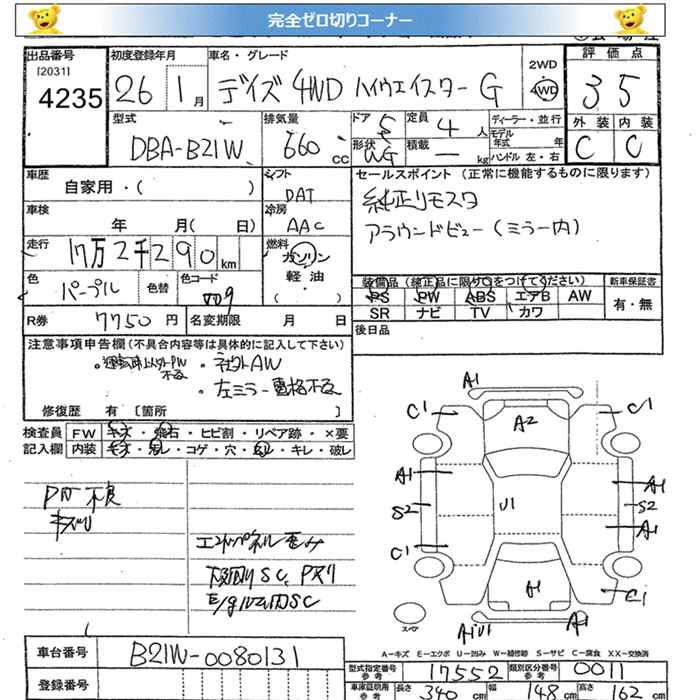 完全ゼロ切りコーナー
出品番号 初度登録年月 車名・グレード 2WD 評価点
[2031]
4235 26 1月 デイズ 4WD ハイウェイスター G 4WD 35
型式 排気量 ドア 5 定員 4人 ディーラー・並行 外装 内装
DBA-B21W 660cc 形状 WG 積載 ー kg モデル年式 年 ハンドル 左・右 C C
車歴 シフト セールスポイント (正常に機能するものに限ります)
自家用・( ) DAT 純正リモスタ
車検 冷房 アラウンドビュー(ミラー内)
年 月( 日) AAC
走行 燃料
17万2千290km ガソリン
色 色替 色コード 軽油 装備品 (純正品に限り○をつけてください) 新車保証書
パープル ・( ) PS PW ABS エアB AW 有・無
SR ナビ TV カワ
R券 7750円 名変期限 月 日 後日品
注意事項申告欄(不具合内容等は具体的に記入して下さい)
・運転席以外PW不良 ・社外AW
・左ミラー電格不良
修復歴 有 [箇所 ]
検査員 FW キズ・飛石・ヒビ割・リペア跡・×要
記入欄 内装 キズ・汚レ・コゲ・穴・ ・キレ・破レ
PW不良
キズU
エンドパネル歪み
下廻りSC、Pスリ
A1 A1
C1 A2 C1
A1 A1
S2 U1 S2
A1
C1
A1 C1
スペア A1U1 A1
A-キズ E-エクボ U-凹み W-補修跡 S-サビ C-腐食 XX-交換済
車台番号 B21W-0080131
登録番号 型式指定番号 参考 17552 類別区分番号 参考 0011
車庫証明用 参考 長さ 340cm 幅 148cm 高さ 162cm